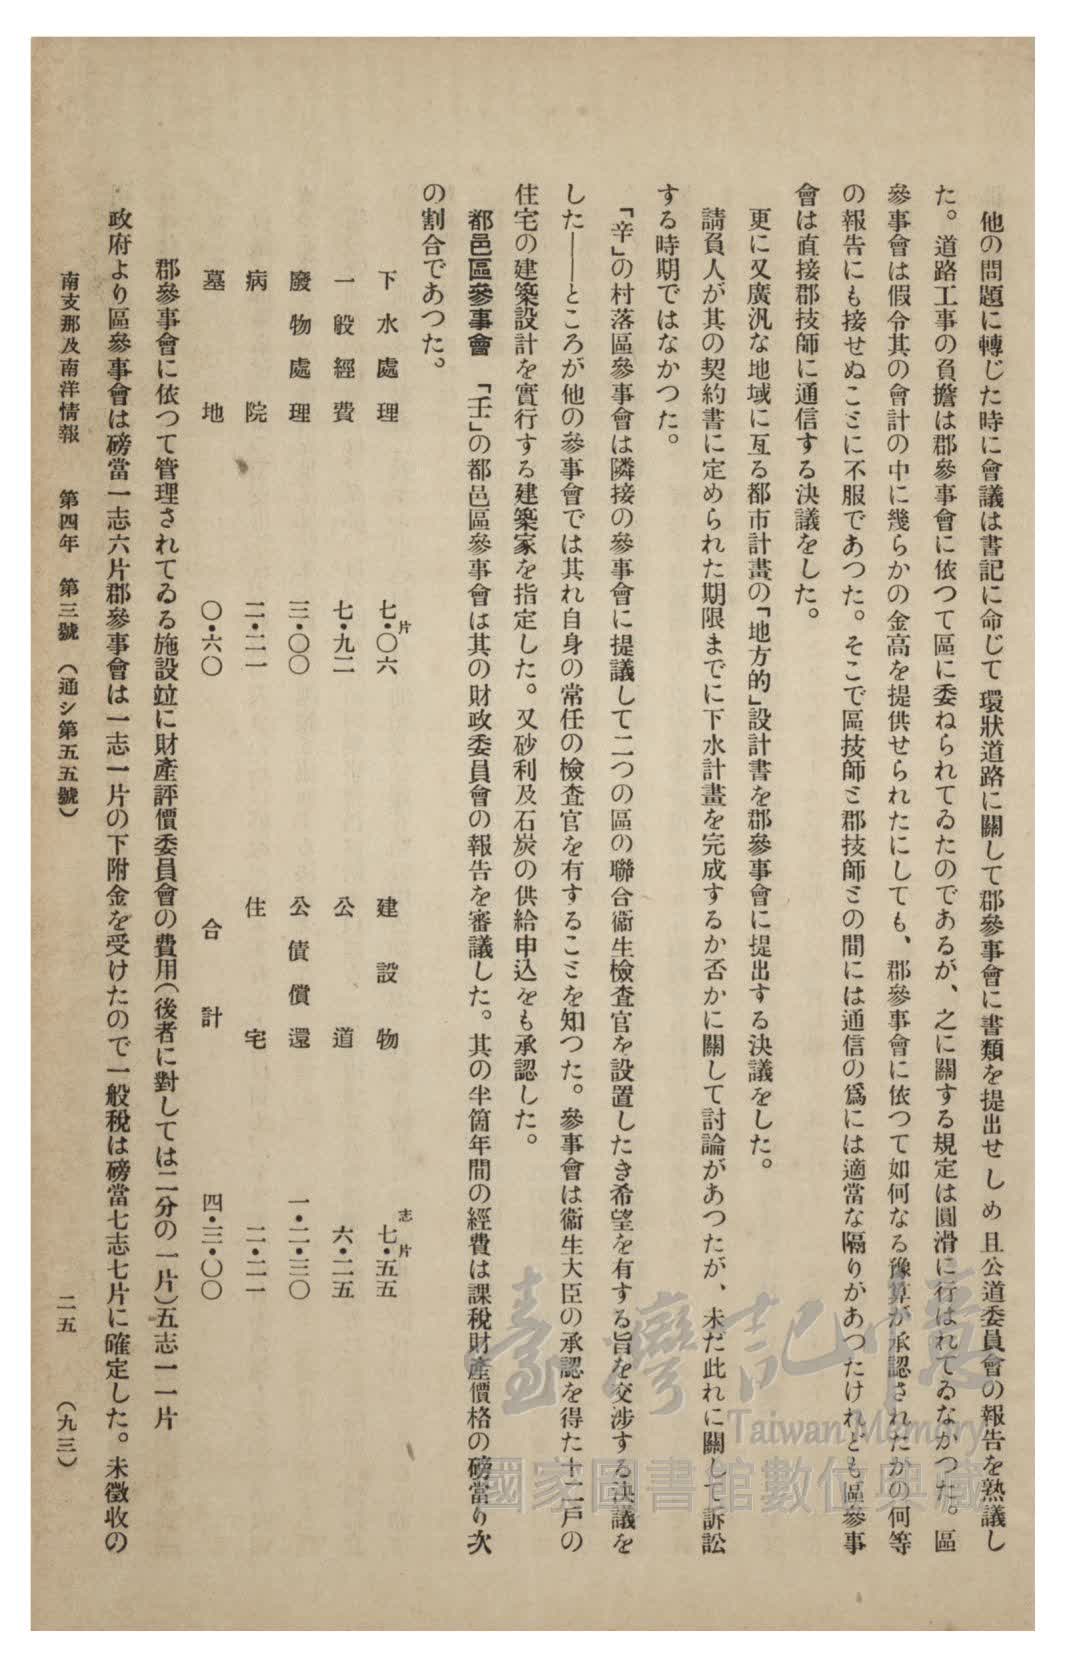 他の問題に轉じた時に會議は書記に命じて環狀道路に關して郡參事會に書類を提出せしめ且公道委員會の報告を熟議し
た。道路工事の負擔は郡參事會に依つて區に委ねられてゐたのであるが、之に關する規定は圓滑に行はれてゐなかつた。區
參事會は假令其の會計の中に幾らかの金高を提供せられたにしても、郡參事會に依つて如何なる豫算が承認されたかの何等
の報告にも接せぬことに不服であつた。そこで區技師と郡技師との間には通信の爲には適當な隔りがあつたけれども區參事
會は直接郡技師に通信する決議をした。
更に又廣汎な地域に亙る都市計畫の「地方的」設計書を郡參事會に提出する決議をした。
請負人が其の契約書に定められた期限までに下水計畫を完成するか否かに關して討論があつたが、未だ此れに關して訴訟
する時期ではなかつた。
「辛」の村落區參事會は隣接の參事會に提議して二つの區の聯合衞生檢査官を設置したき希望を有する旨を交涉する決議を
した――ところが他の參事會では其れ自身の常任の檢査官を有することを知つた。參事會は衞生大臣の承認を得た十二戶の
住宅の建築設計を實行する建築家を指定した。又砂利及石炭の供給申込をも承認した。
都邑區參事會　「壬」の都邑區參事會は其の財政委員會の報告を審議した。其の半箇年間の經費は課稅財產價格の磅當り次
の割合であつた。
下水處理　七片・〇六　建設物　七志・五五片
一般經費　七・九二　公道　六・二五
廢物處理　三・〇〇　公債償還　一・二・三〇
病院　二・二一　住宅　二・二一
墓地　〇・六〇　合計　四・三・〇〇
郡參事會に依つて管理されてゐる施設竝に財產評價委員會の費用(後者に對しては二分の一片)五志一一片
政府より區參事會は磅當一志六片郡參事會は一志一片の下附金を受けたので一般稅は磅當七志七片に確定した。未徵收の
南支那及南洋情報　第四年　第三號　(通シ第五五號)　二五　(九三)
臺灣記憶
Taiwan Memory
國家圖書館數位典藏